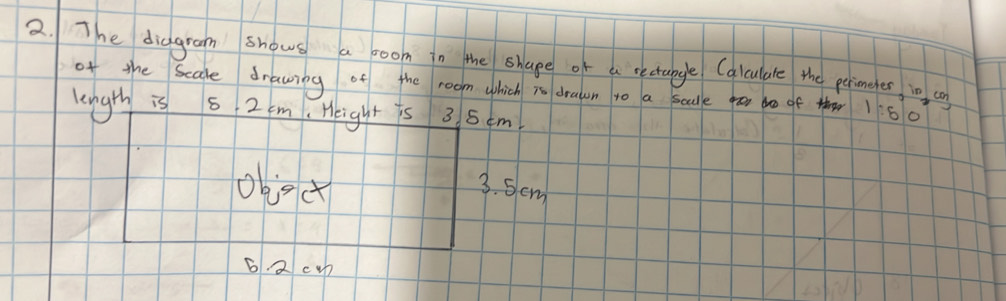 2. The diagram shows a room in the shape of a rectangle. Calculate the perimeter, in cm,
of the Scale drawing of the room which is drawn to a scale of 1:50
length is 5.2cm. Height is 3.5cm.
Object
3.5cm
5.2 cm